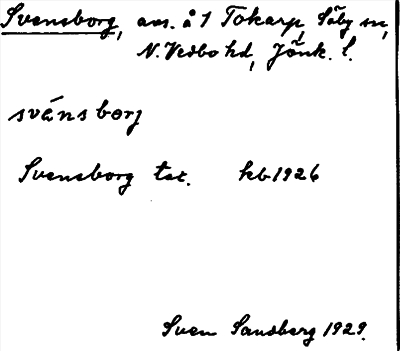 Svensborg, avs. å 1 Tokarp, Säby sn,
N. Vedbo hd, Jönk. l.
svénsborj
Svensborg tst. kb 1926
Sven Sandberg 1929.